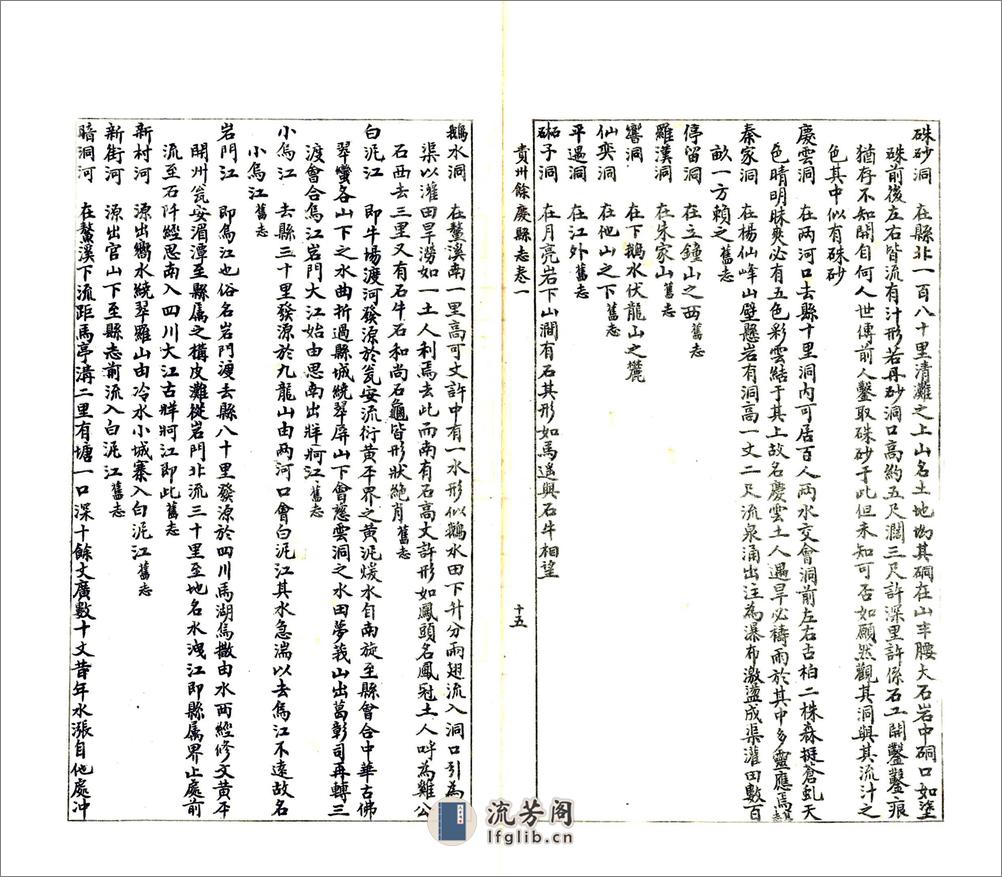 硃砂洞　在縣北一百八十里清灘之上山名土地坳其硐在山半腰大石岩中硐口如塗
硃前後左右皆流有汁形若丹砂洞口高約五尺濶三尺許深里許係石工開鑿鑿痕
猶存不知開自何人世傳前人鑿取硃砂于此但未知可否如願然觀其洞與其流汁之
色其中似有硃砂
慶雲洞　在两河口去縣十里洞内可居百人两水交會洞前左右古柏二株森挺蒼虬天
色晴明昧爽必有五色彩雲結于其上故名慶雲土人遇旱必禱雨於其中多靈應焉舊志
秦家洞　在楊仙峰山壁懸岩有洞高一丈二尺流泉涌出注為瀑布激盪成渠灌田數百
畝一方賴之舊志
停留洞　在立鐘山之西舊志
羅漢洞　在朱家山舊志
響洞　在下鵝水伏龍山之麓
仙奕洞　在他山之下舊志
平遏洞　在江外舊志
硳子洞　在月亮岩下山澗有石其形如馬遥與石牛相望
貴州餘慶縣志卷一　十五
鵝水洞　在鰲溪南一里高可丈許中有一水形似鵝水田下升分兩翅流入洞口引為
渠以灌田旱澇如一土人利焉去此而南有石高丈許形如鳳頭名鳳冠土人呼為雞公
石西去三里又有石牛石和尚石龜皆形狀絶肖舊志
白泥江　即牛塲渡河發源於瓮安流衍黄平界之黄泥煖水自南旋至縣會合中華古佛
翠蠻各山下之水曲折過縣城繞翠屏山下會慈雲洞之水田夢莪山出葛彰司再轉三
渡會合烏江岩門大江始由思南出牂牁江舊志
小烏江　去縣三十里發源於九龍山由两河口會白泥江其水急湍以去烏江不遠故名
小烏江舊志
岩門江　即烏江也俗名岩門渡去縣八十里發源於四川馬湖烏撒由水西經修文黄平
開州瓮安湄潭至縣属之構皮灘從岩門北流三十里至地名水洩江即縣属界止處前
流至石阡經思南入四川大江古牂牁江即此舊志
新村河　源出嚮水繞翠羅山由冷水小城寨入白泥江舊志
新街河　源出官山下至縣志前流入白泥江舊志
暗洞河　在鰲溪下流距馬亭溝二里有塘一口深十餘丈廣數十丈昔年水漲自他處冲
流芳阁
lfglib.cn